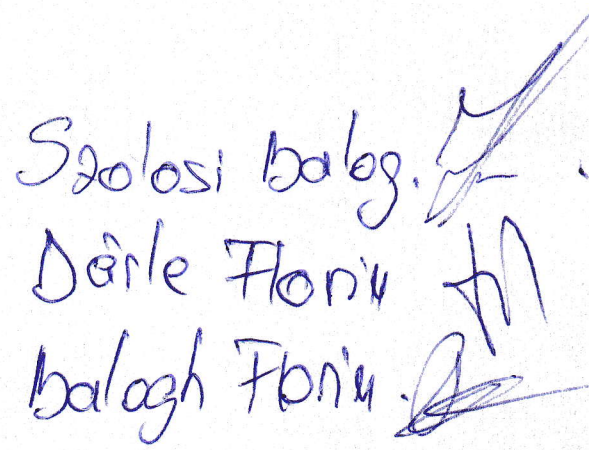 Szolosi Balog.
Dârle Florin
Balogh Florin.